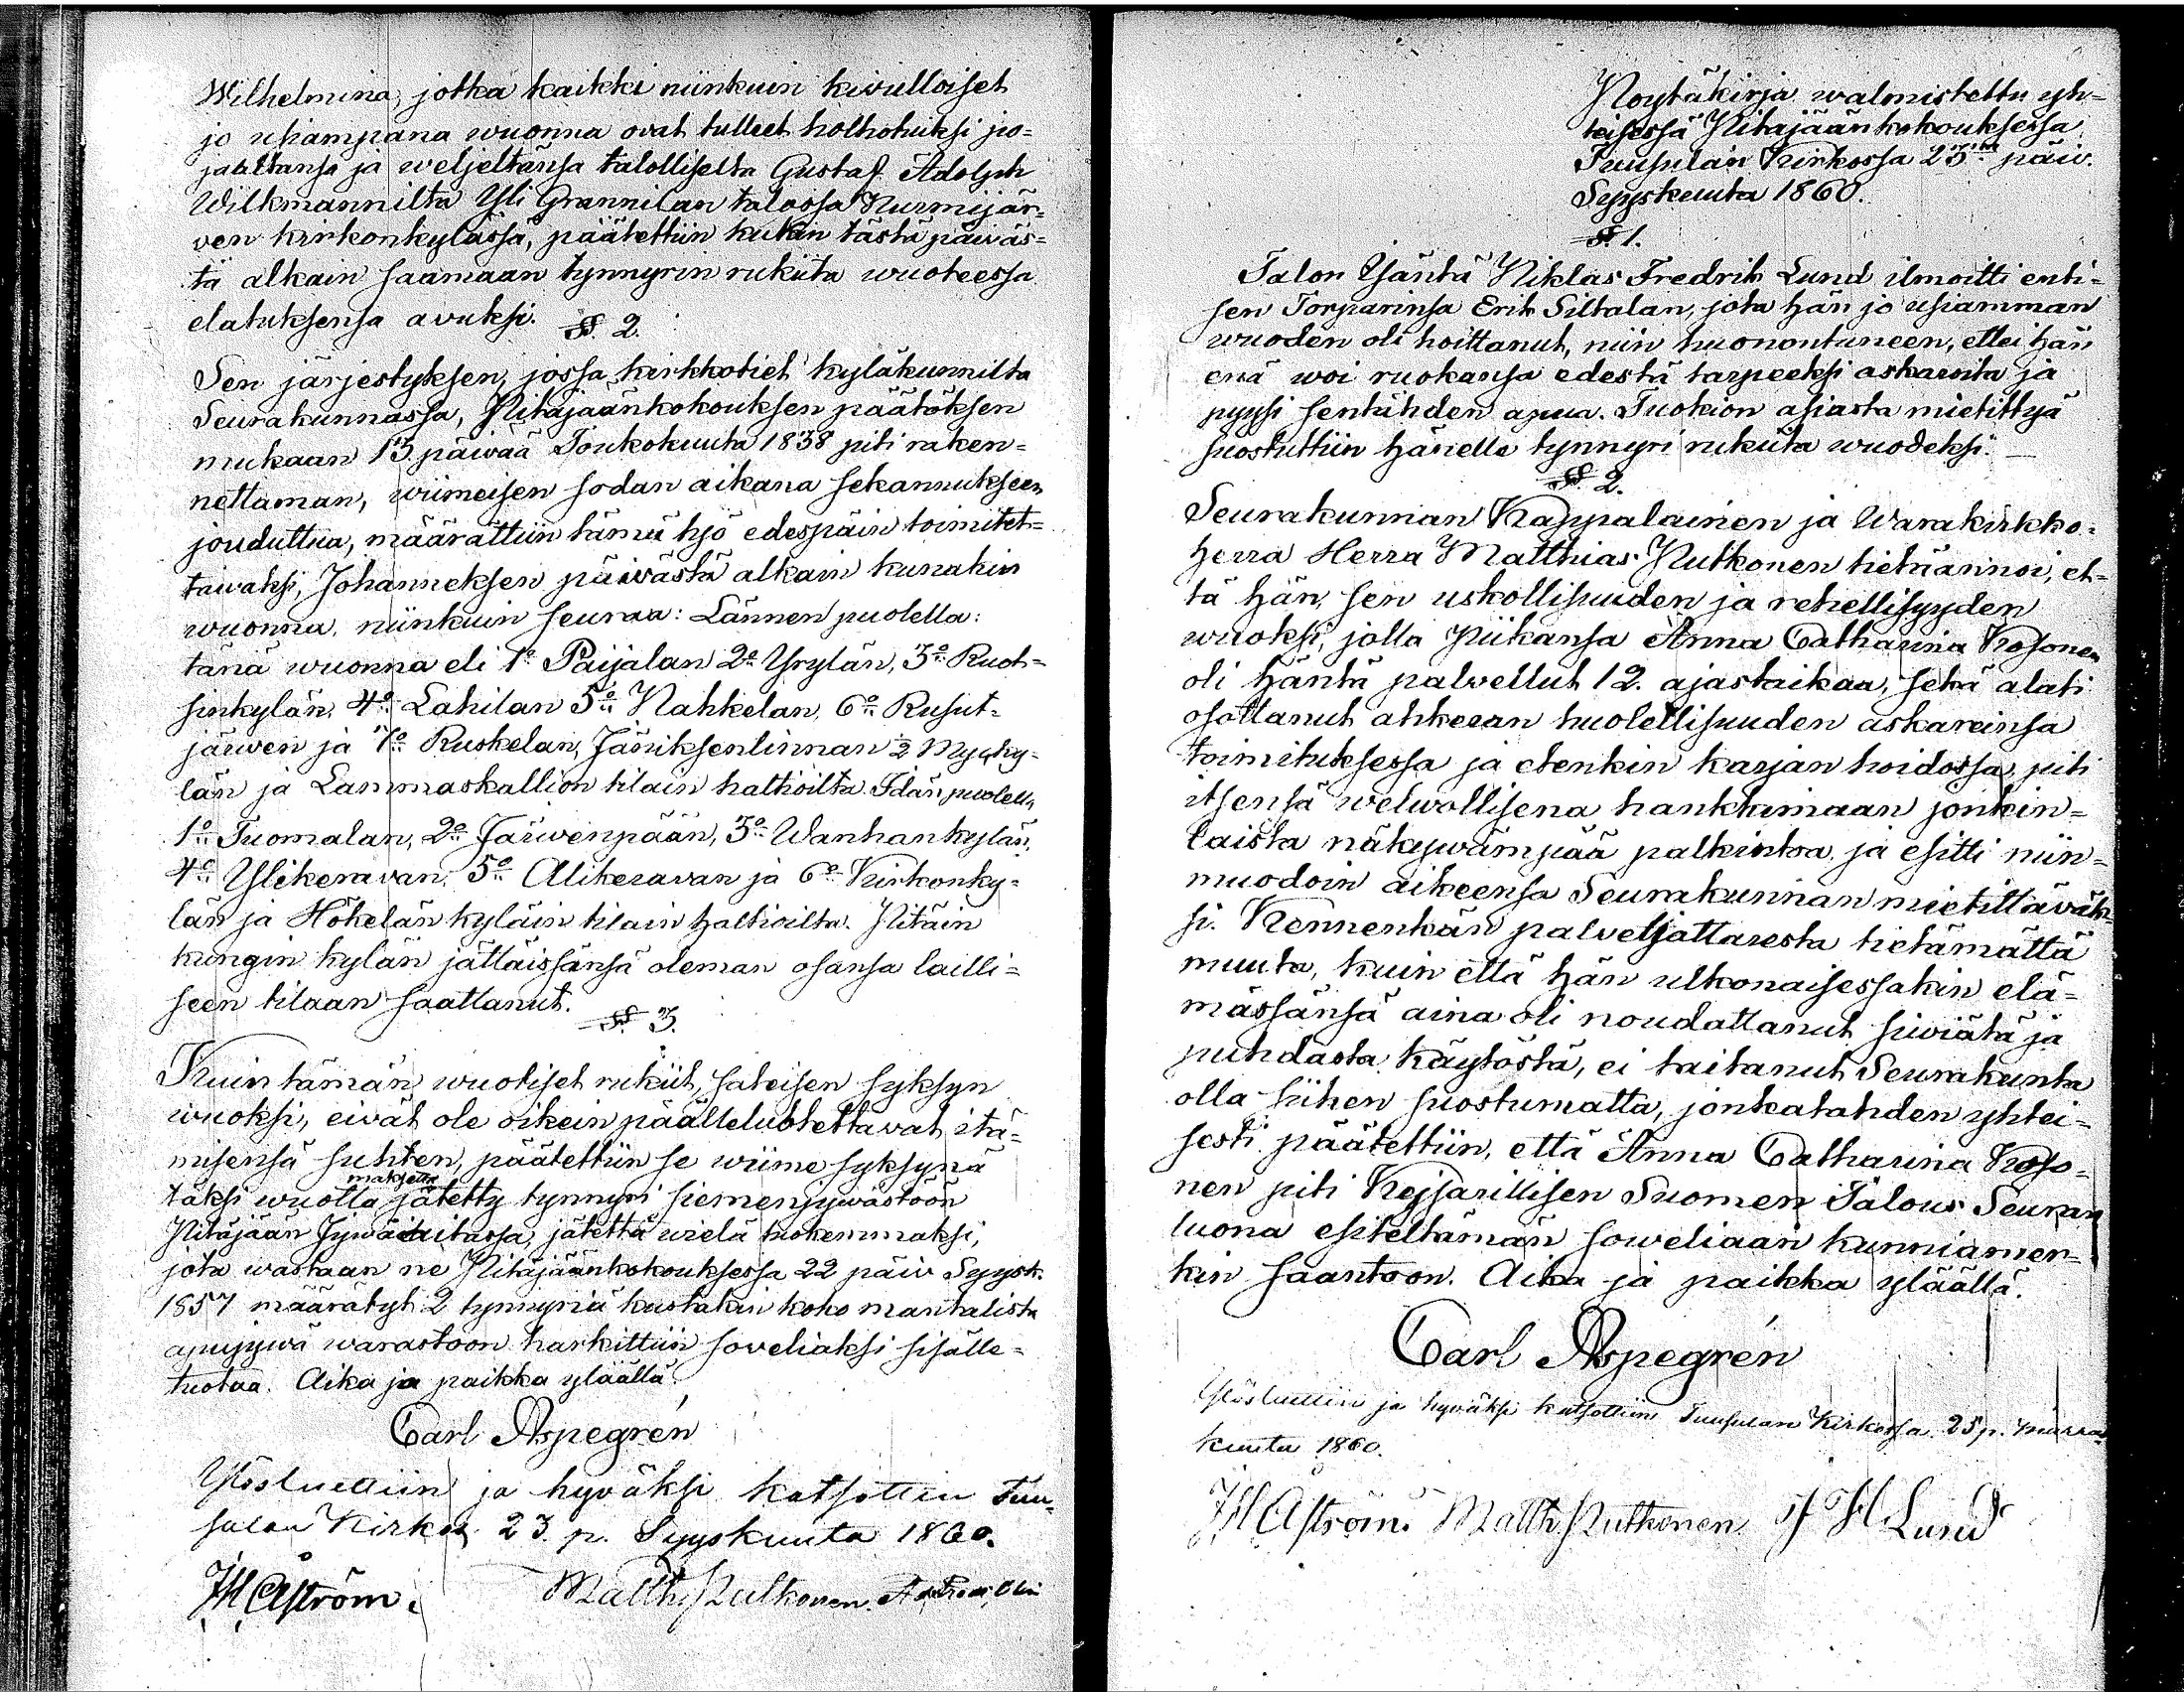 Wilhelmina, jotka kaikki niinkuin kivulloiset
jo usiampana wuonna ovat tulleet holhotuiksi po-
jaltansa ja weljeltänsä talolliselta Gustaf Adolph
Wilkmannilta Yli Grannilan talossa Nurmijär-
ven kirkonkylässä, päätettiin kukin tästä päiväs-
tä alkain saamaan tynnyrin rukiita wuoteessa
elatuksensa avuksi.
§. 2.
Sen järjestyksen, jossa kirkkotiet kyläkunnilta
Seurakunnassa, Pitäjäänkokouksen päätöksen
mukaan 13 päivää Toukokuuta 1838 piti raken-
nettaman, wiimeisen sodan aikana sekannukseen
jouduttua, määrättiin tämä työ edespäin toimitet-
tawaksi, Johanneksen päivästä alkain kunakin
wuonna, niinkuin seuraa: Lännen puolella:
tänä wuonna eli 1:o Paijalan 2:o Yrylän, 3:o Ruot-
sinkylän, 4:o Lahilan 5:o Nahkelan, 6:o Rusut-
järwen ja 7:o Ruskelan, Jäniksenlinnan 2 Myllyky-
län ja Lammaskallion tilain haltioilta. Idän puolella
1:o Tuomalan, 2:o Järwenpään, 3:o Wanhankylän,
4:o Ylikeravan, 5:o Alikeravan ja 6:o Kirkonky-
län ja Hökelän kyläin tilain haltioilta. Pitäin
kungin kylän jälläissänsä oleman osansa lailli-
seen tilaan saattanut.
§. 3.
Kuin tämän wuotiset rukiit, sateisen syksyn
wuoksi, eivät ole oikein päälleluotettavat itä-
misensä suhten, päätettiin se wiime syksynä
maksetta
täksi wuotta jätetty tynnyri siemenjywästöön
Pitäjään Jywäaitassa, jätettä wielä tuokemmaksi,
jota wastaan ne Pitäjäänkokouksessa 22 päiv Syysk.
1857 määrätyt 2 tynnyriä kustakin koko mantalista
apujywä warastoon harkittiin soveliaksi sisälle-
tuotaa. Aika ja paikka ylläällä.
Carl Aspegrén
Ylösluettiin ja hyväksi katsottiin Tuu-
sulan Kirkos. 23 p. Syyskuuta 1860.
J H Åström. Matth Putkonen.
Pöytäkirja walmistettu yh-
teisessä Pitäjäänkokouksessa
Tuusulan Kirkossa 23:na päiv.
Syyskuuta 1860.
§. 1.
Talon Isäntä Niklas Fredrik Lund ilmoitti enti-
sen Torparinsa Erik Siltalan, jota hän jo usiamman
wuoden oli hoittanut, niin huonontuneen, ettei hän
enä woi ruokansa edestä tarpeeksi askaroita ja
pyysi sentähden apua. Tuokion asiasta mietittyä
suostuttiin hänelle tynnyri rukiita wuodeksi. —
§. 2.
Seurakunnan Kappalainen ja Warakirkko-
herra Herra Matthias Putkonen tietäännoi, et-
tä hän, sen uskollisuuden ja rehellisyyden
wuoksi, jolla Piikansa Anna Catharina Kosonen
oli häntä palvellut 12. ajastaikaa, sekä alati
osottanut ahkeran huolellisuuden askareinsa
toimituksessa ja etenkin karjan hoidossa, piti
itsensä welwollisena hankkimaan jonkin-
laista näkywämpää palkintoa, ja esitti niin-
muodoin aikeensa Seurakunnan mietittäväk-
si. Kennenkän palveljattaresta tietämättä
muuta, kuin että hän ulkonaisessakin elä-
mässänsä aina oli noudattanut siwiätä ja
puhdasta käytöstä, ei taitanut Seurakunta
olla siihen suostumatta, jonkatähden yhtei-
sesti päätettiin, että Anna Catharina Koso-
nen piti Keisarillisen Suomen Talous Seuran
luona esiteltämän soweliaan kunniamer-
kin saantoon. Aika ja paikka ylläällä.
Carl Aspegrén
Ylösluettiin ja hyväksi katsottiin Tuusulan Kirkossa 25 p. Marras
kuuta 1860.
J H Åström. Matth Putkonen N F Lund